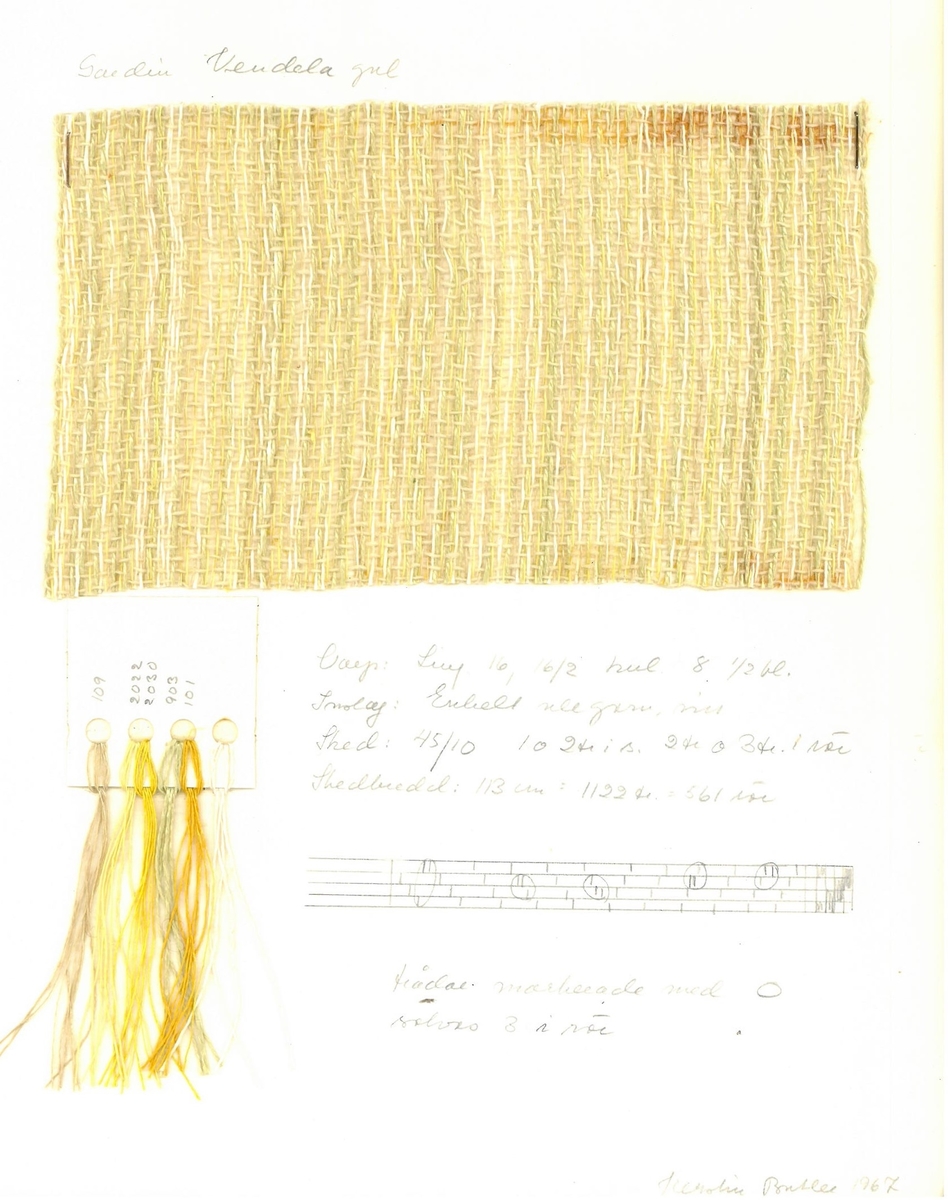 Gardin Vendela gul
109
2022
2030
903
101
Varp: Ling 16, 16/2 hul. 8, 1/2 bl.
Inslag: Enkelt
Sked: 45/10 1 o 2 tr i s. 2 tr o 3 tr. i rör
Skedbredd: 113 cm = 1122 tr. = 561 rör
trådar markerade med O
solvas 3 i rör
Kerstin Butler 1967